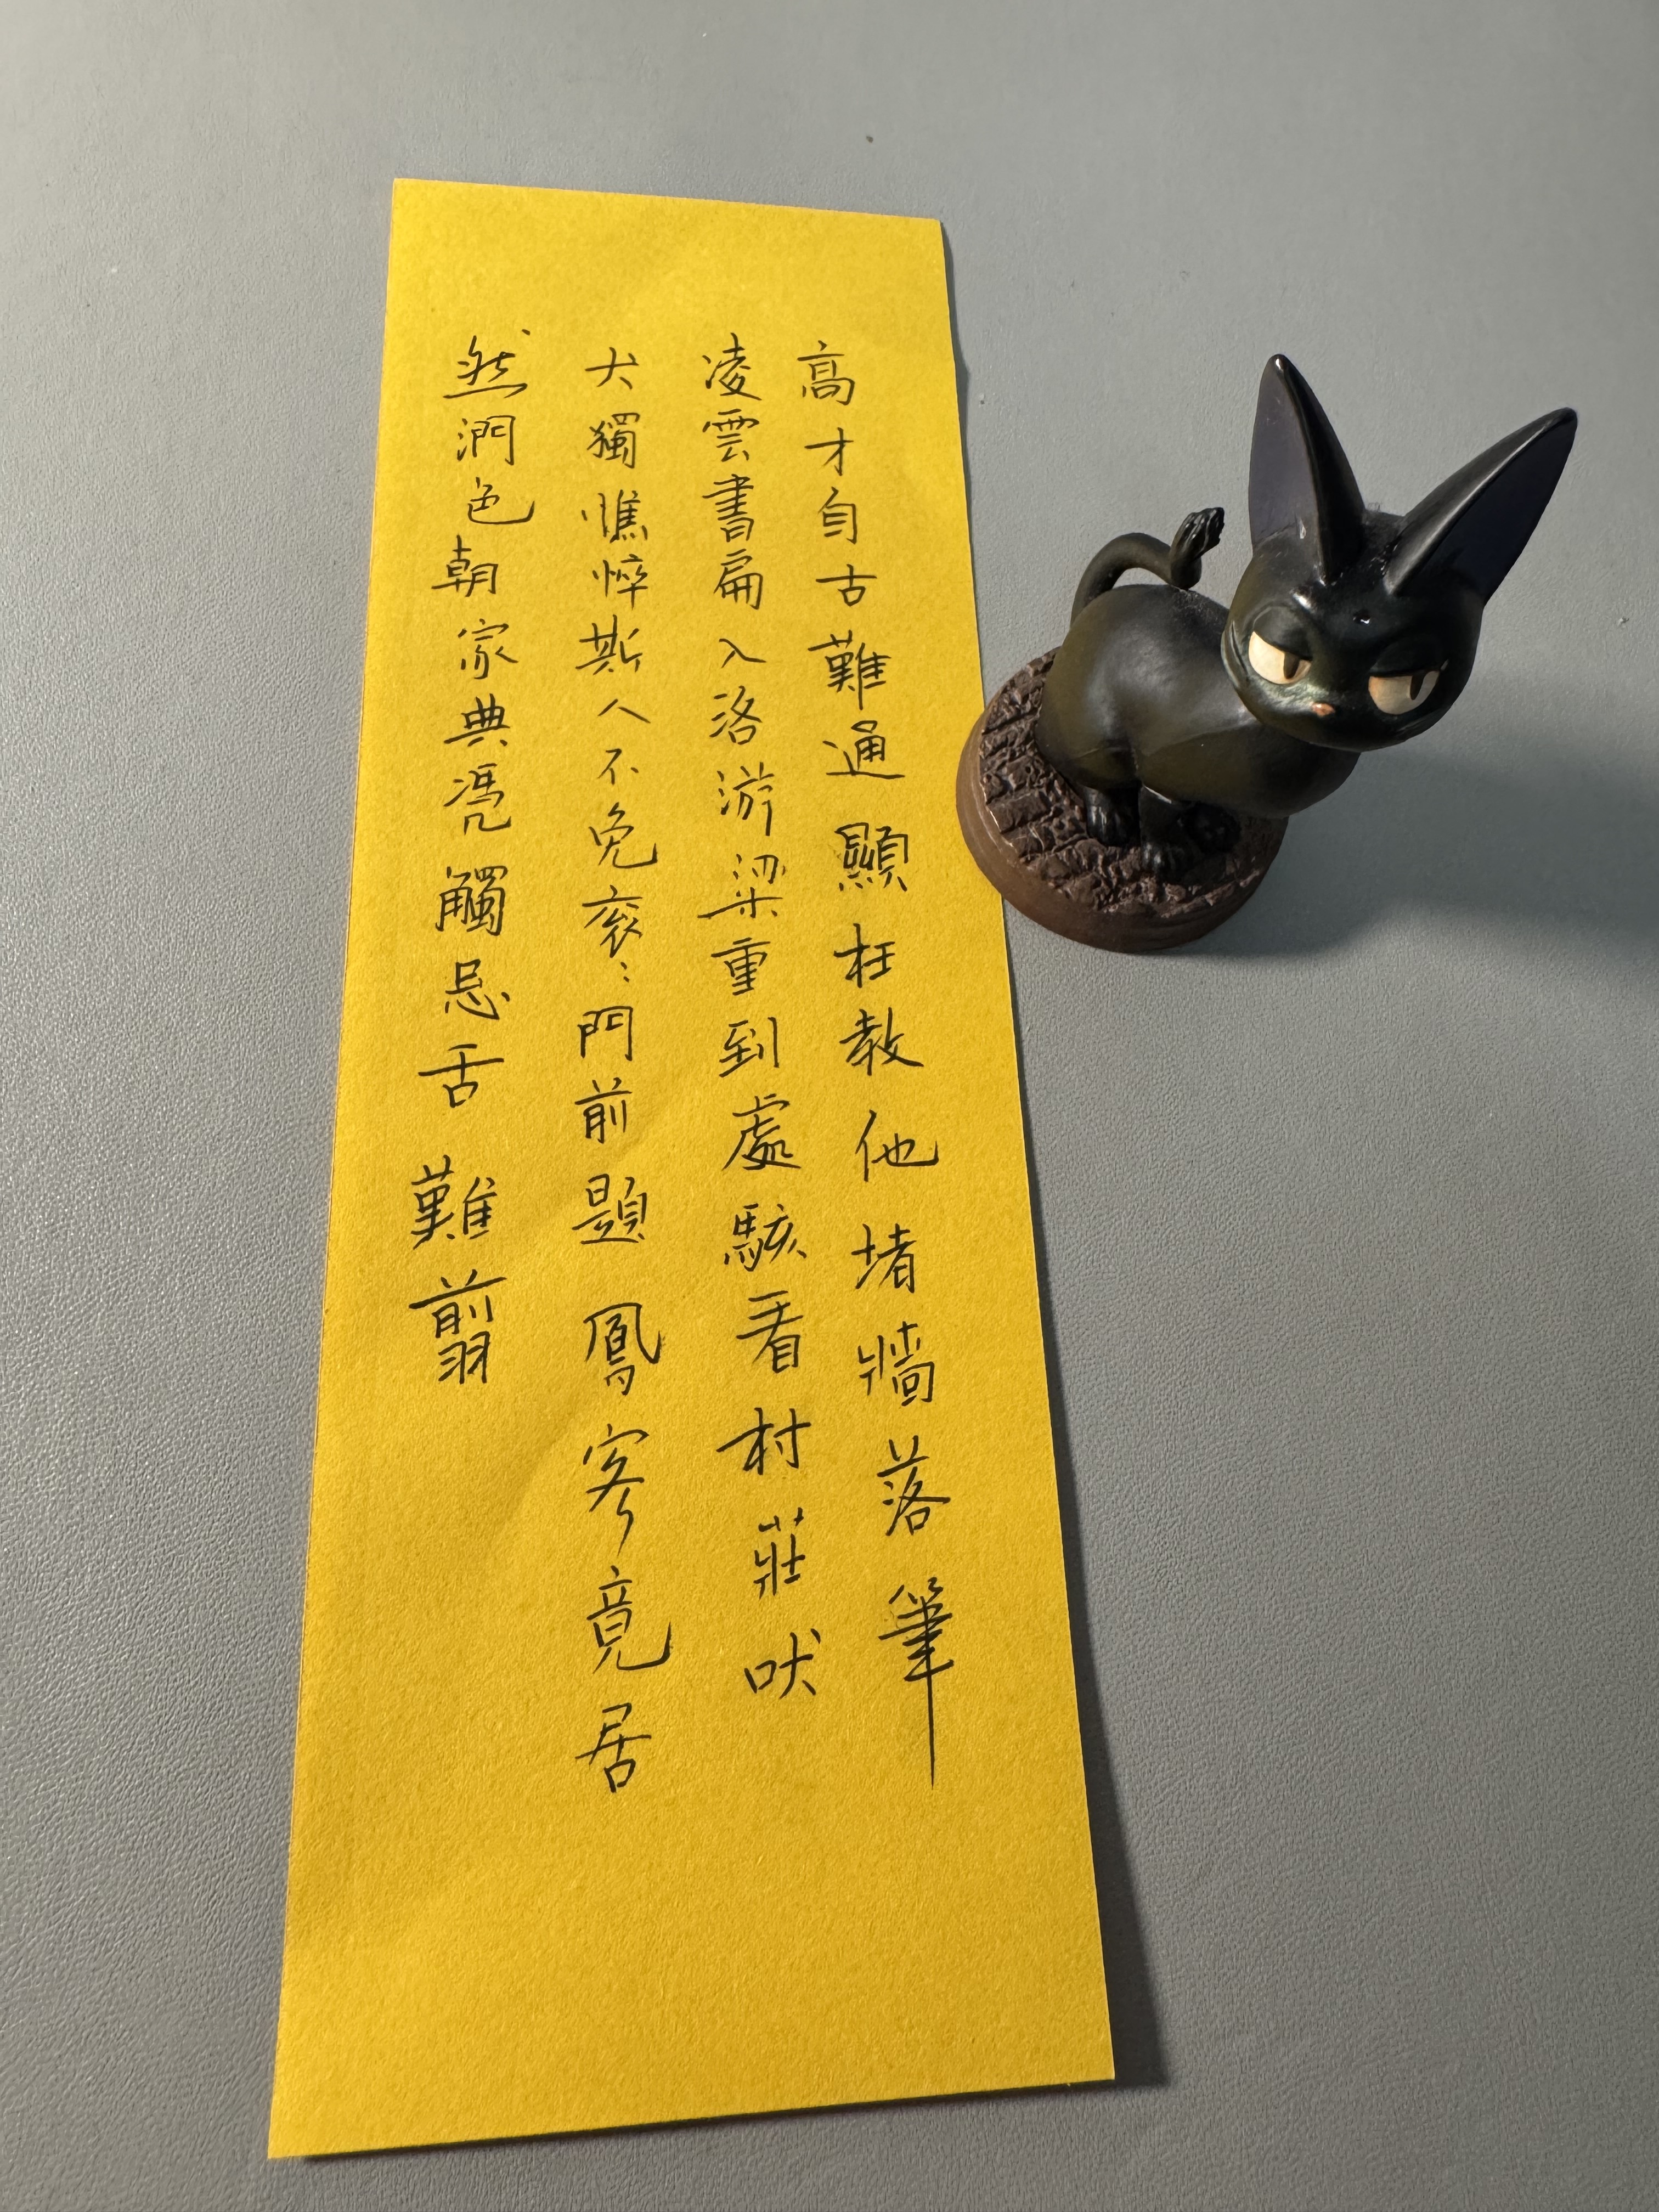 高才自古難通顯枉教他堵牆落筆
凌雲書扁入洛游梁重到處駭看村莊吠
犬獨憔悴斯人不免袞〻門前題鳳客竟居
然潤色朝家典凴觸忌舌難翦